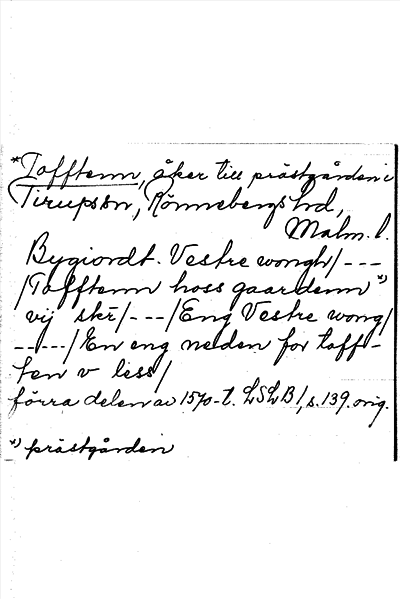 *Tofftenn, åker till prästgården i
Tirups sn, Rönnebergs hd,
Malm. l.
Bygiordt. Vestre wongh/ ---
/Tofftenn hoss gaardenn *)
vij skr/ --- /Eng Vestre wong/
----- /En eng neden for toff-
ten v less/
förra delen av 1570-t. LSLB1, s. 139. orig.
*) prästgården